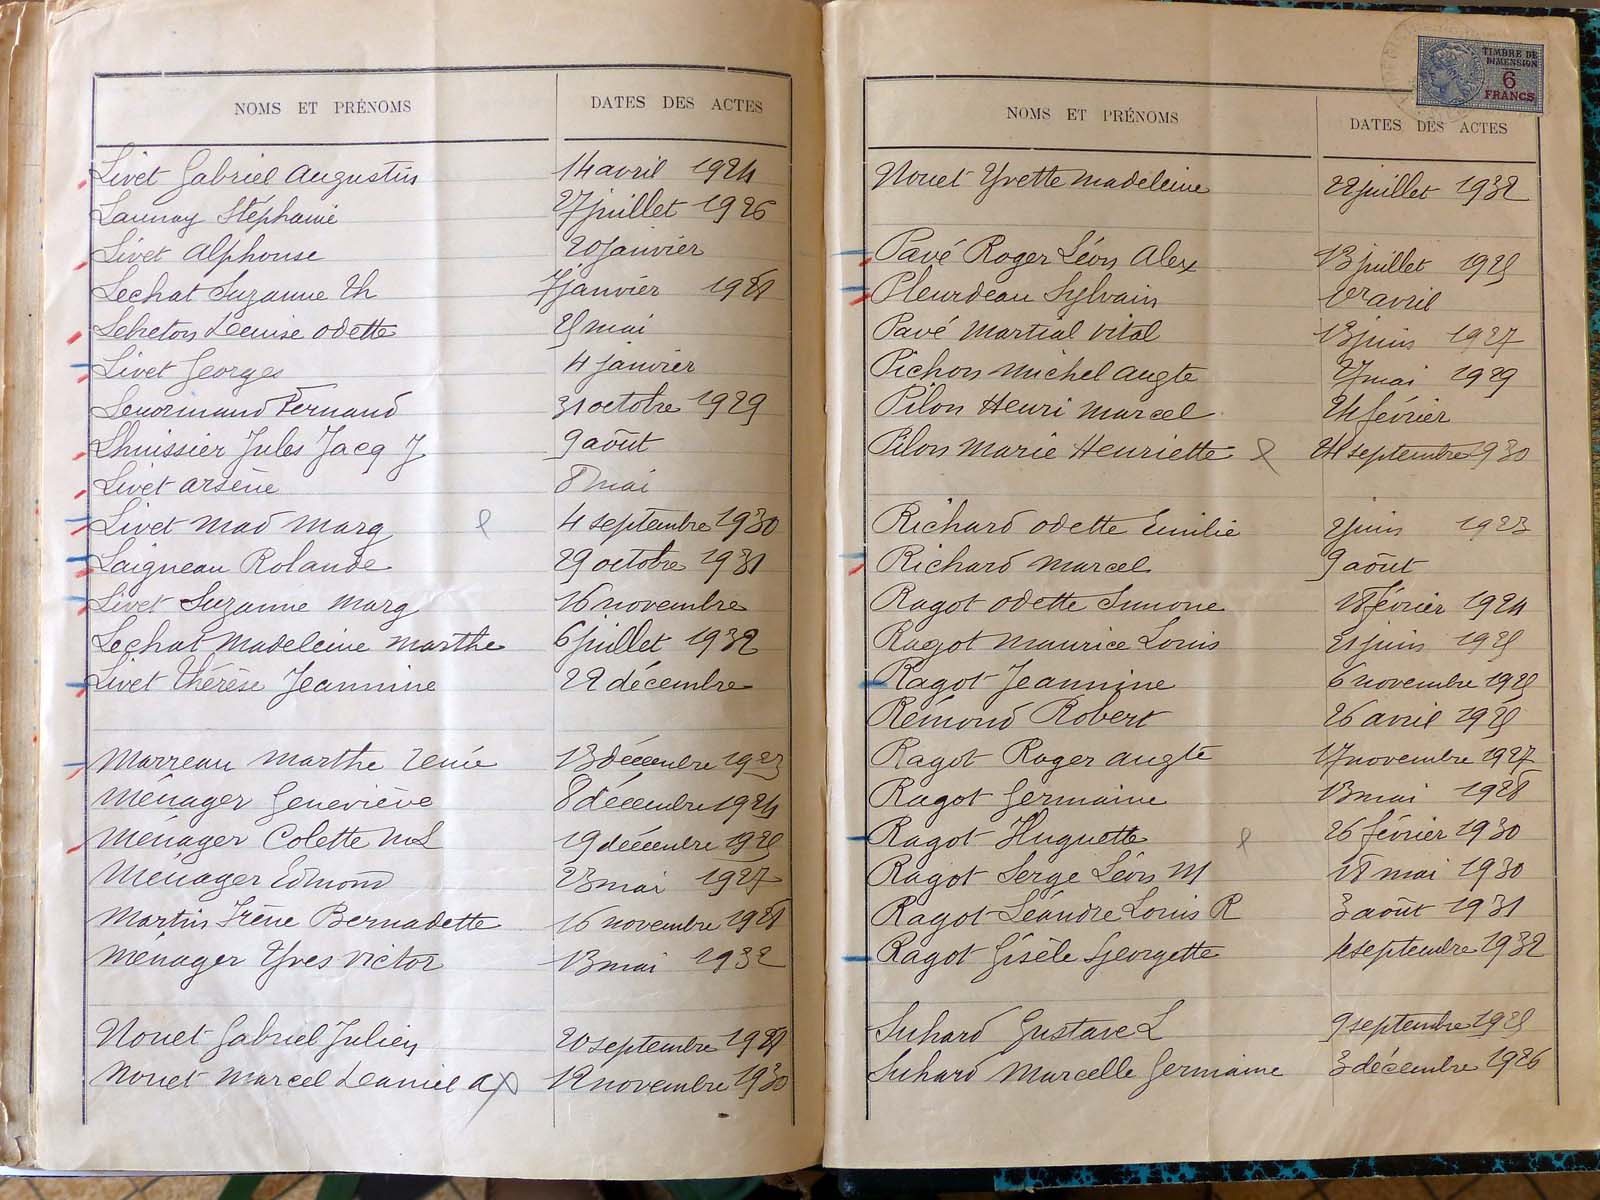 NOMS ET PRÉNOMS DATES DES ACTES
Livet Gabriel Augustin 14 avril 1924
Launay Stéphanie 27 juillet 1926
Livet Alphonse 20 janvier
Lechat Suzanne Th 7 janvier 1928
Lebreton Denise Odette 25 mai
Livet Georges 4 janvier
Lenormand Fernand 31 octobre 1929
Lhuissier Jules Jacq J 9 août
Livet Arsène 8 mai
Livet Mad Marg 4 septembre 1930
Laigneau Rolande 29 octobre 1931
Livet Suzanne Marg 16 novembre
Lechat Madeleine Marthe 6 juillet 1932
Livet Thérèse Jeannine 22 décembre
Marreau Marthe Renée 13 décembre 1923
Ménager Geneviève 8 décembre 1924
Ménager Colette ML 19 décembre 1925
Ménager Edmond 23 mai 1927
Martin Irène Bernadette 16 novembre 1928
Ménager Yves Victor 13 mai 1932
Nouet Gabriel Julien 20 septembre
Nouet Marcel Daniel A 12 novembre 1930
TIMBRE DE
DIMENSION
6
FRANCS
NOMS ET PRÉNOMS DATES DES ACTES
Nouet Yvette Madeleine 22 juillet 1932
Pavé Roger Léon Alex 13 juillet 1925
Pleurdeau Sylvain 1er avril
Pavé Martial Vital 13 juin 1927
Pichon Michel Augte 27 mai 1929
Pilon Henri Marcel 24 février
Pilon Marie Henriette 24 septembre 1930
Richard Odette Emilie 2 juin 1923
Richard Marcel 9 août
Ragot Odette Simone 18 février 1924
Ragot Maurice Louis 21 juin 1925
Ragot Jeannine 6 novembre 1925
Rémond Robert 26 avril 1925
Ragot Roger Augte 17 novembre 1927
Ragot Germaine 13 mai 1928
Ragot Huguette 26 février 1930
Ragot Serge Léon M 18 mai 1930
Ragot Léandre Louis R 3 août 1931
Ragot Gisèle Georgette 4 septembre 1932
Suhard Gustave L 9 septembre 1925
Suhard Marcelle Germaine 3 décembre 1926